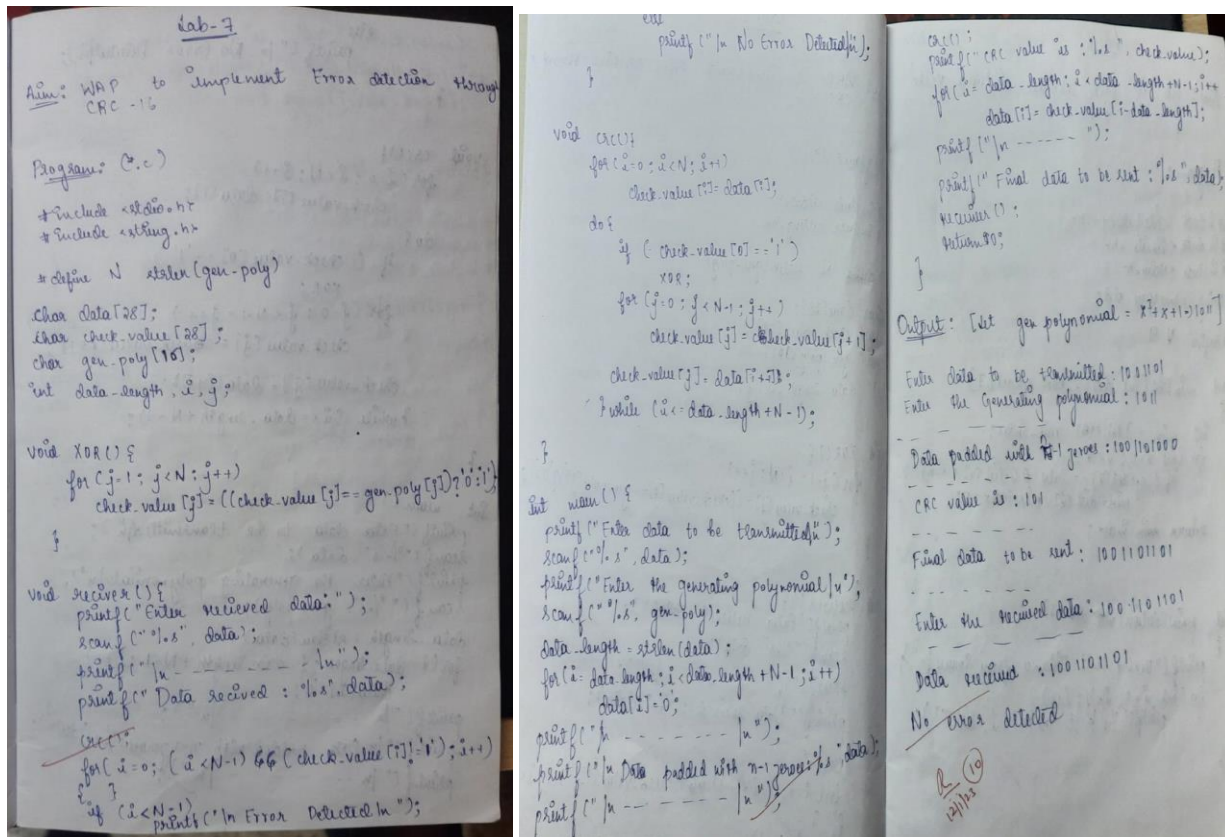 Lab-7
Aim: WAP to implement Error detection through
CRC-16
Program: (*.c)
#include <stdio.h>
#include <string.h>
#define N strlen(gen-poly)
char data[28];
char check-value[28];
char gen-poly[10];
int data-length, i, j;
void XOR() {
for (j=1; j<N; j++)
check-value[j] = ((check-value[j] == gen-poly[j])?'0':'1');
}
void reciver() {
printf("Enter recieved data:");
scanf("%s", data);
printf("\n - - - - - - \n");
printf("Data recived : %s", data);
crc();
for(i=0; (i<N-1) && (check-value[i]!='1'); i++)
{ }
if (i<N-1)
printf("\n Error Detected \n ");
else
printf ("\n No Error Detected\n");
}
void crc() {
for (i=0; i<N; i++)
check-value[i] = data[i];
do {
if (check-value[0] == '1')
XOR;
for (j=0; j<N-1; j++)
check-value[j] = check-value[j+1];
check-value[j] = data[i++];
} while (i<= data-length+N-1);
}
int main() {
printf("Enter data to be transmitted\n");
scanf("%s", data);
printf("Enter the generating polynomial \n");
scanf("%s", gen-poly);
data-length = strlen(data);
for(i= data-length; i< data-length+N-1; i++)
data[i]='0';
printf("\n - - - - - - - \n ");
printf("\n Data padded with n-1 zeroes: %s", data);
printf("\n - - - - - - - \n ");
crc();
printf("CRC value is : %s", check-value);
for(i= data-length; i< data-length+N-1; i++
data[i]= check-value[i-data-length];
printf("\n - - - - - - ");
printf("Final data to be sent : %s", data);
reciever();
return 0;
}
Output: [let gen polynomial = x³+x+1→1011]
Enter data to be transmitted : 1001101
Enter the Generating polynomial: 1011
- - - - - - - - -
Data padded with n-1 zeroes : 1001101000
- - - - - - -
CRC value is : 101
- - - - - - -
Final data to be sent : 1001101101
- - - - - - -
Enter the recieved data: 1001101101
- - - - - - -
Data recieved : 1001101101
No error detected
10
12/1/23